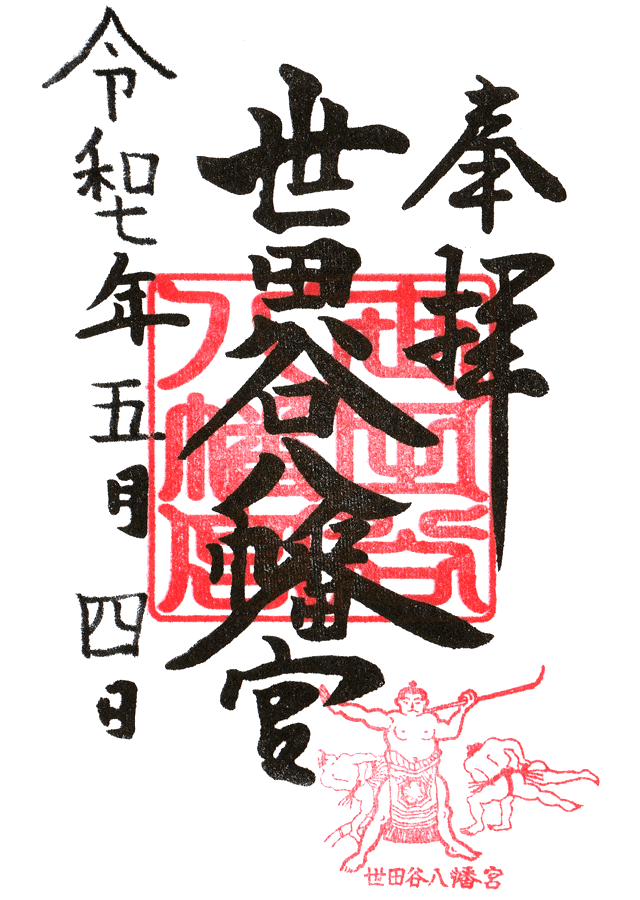 奉拝
世田谷八幡宮
令和七年五月四日
世田谷
八幡宮
世田谷八幡宮